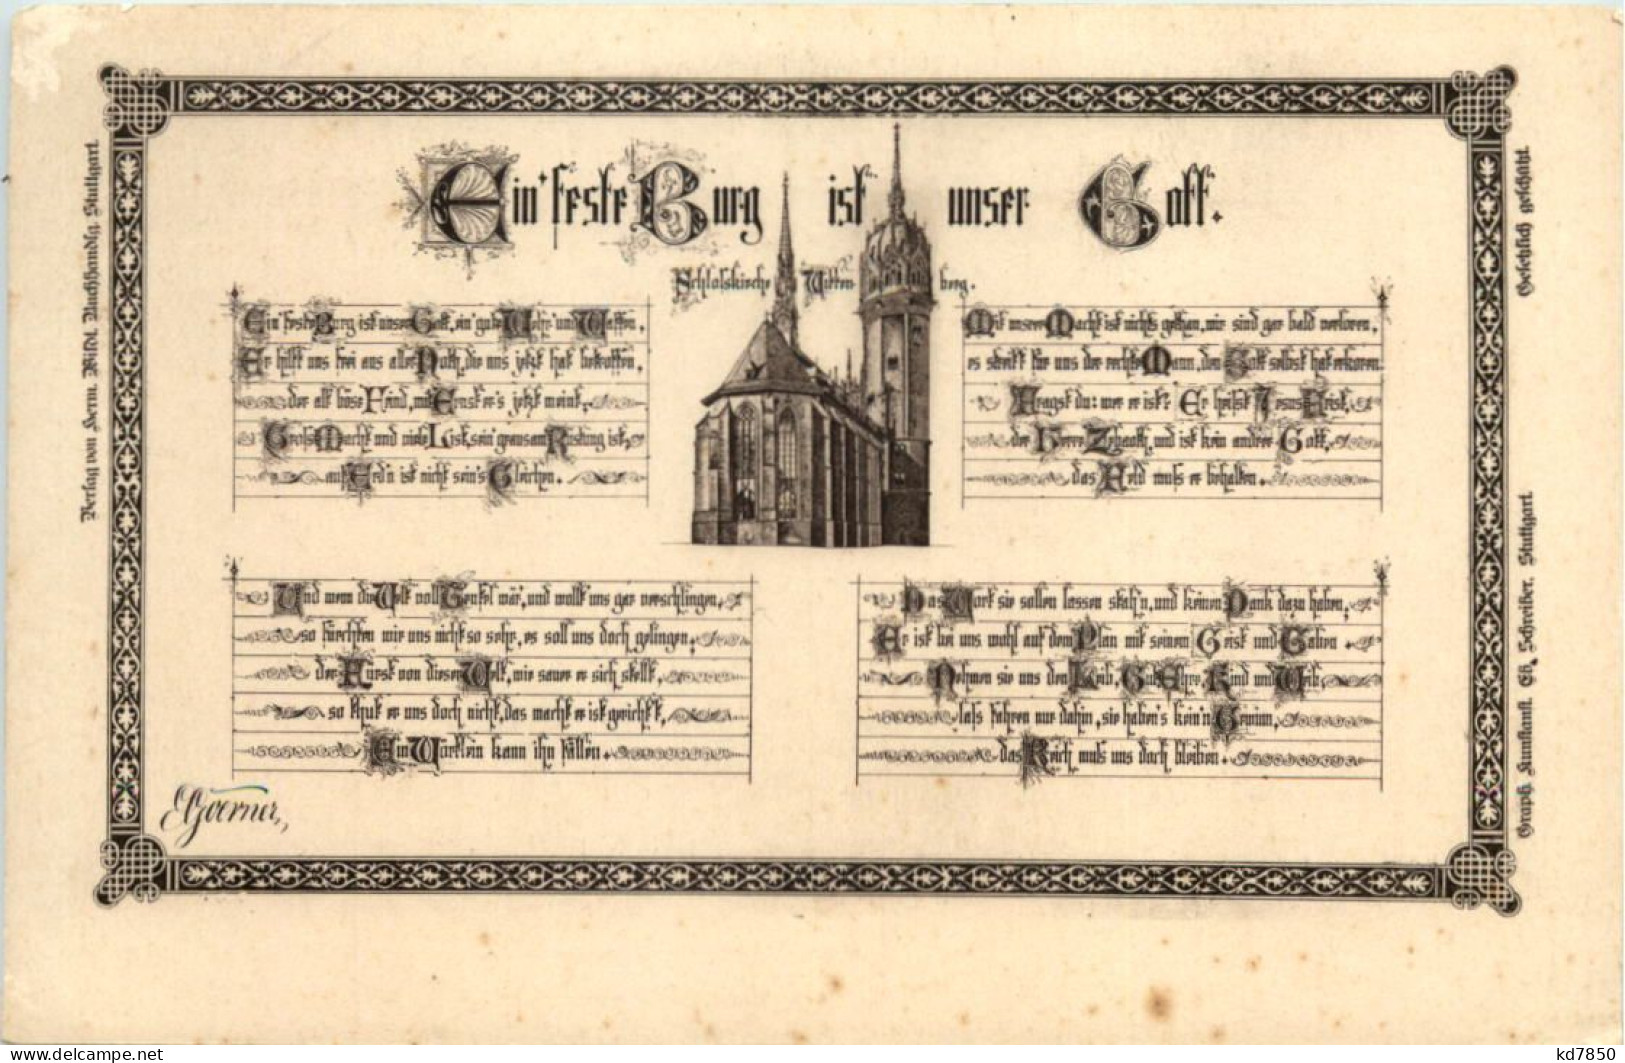 Ein' feste Burg ist unser Gott.
Schlosskirche Wittenberg.
Ein' feste Burg ist unser Gott, ein' gute Wehr' und Waffen,
Er hilft uns frei aus aller Noth, die uns jetzt hat betroffen,
der alt' böse Feind, mit Ernst er's jetzt meint,
Gross Macht und viele List, sein' grausam Rüstung ist,
auf Erd'n ist nicht sein's Gleichen.
Mit unsrer Macht ist nichts gethan, wir sind gar bald verloren,
es streitt für uns der rechte Mann, den Gott selbst hat erkoren.
Fragst du: wer er ist? Er heisst Jesus Christ,
der Herre Zebaoth, und ist kein andrer Gott,
das Feld muss er behalten.
Und wenn die Welt voll Teufel wär', und wollt' uns gar verschlingen,
so fürchten wir uns nicht so sehr, es soll uns doch gelingen;
der Fürst von dieser Welt, wie sauer er sich stellt,
so thut er uns doch nicht, das macht er ist gericht't,
Ein Wörtlein kann ihn fällen.
Das Wort sie sollen lassen stah'n, und keinen Dank dazu haben,
Er ist bei uns wohl auf dem Plan mit seinem Geist und Gaben.
Nehmen sie uns den Leib, Gut, Ehre, Kind und Weib,
lass fahren nur dahin, sie haben's kein'n Gewinn,
das Reich muss uns doch bleiben.
Verlag von Herm. Wildt, Buchhandlg. Stuttgart.
Gesetzlich geschützt.
Graph. Kunstanst. Eb. Schreiber, Stuttgart
kd7850
© delcampe.net